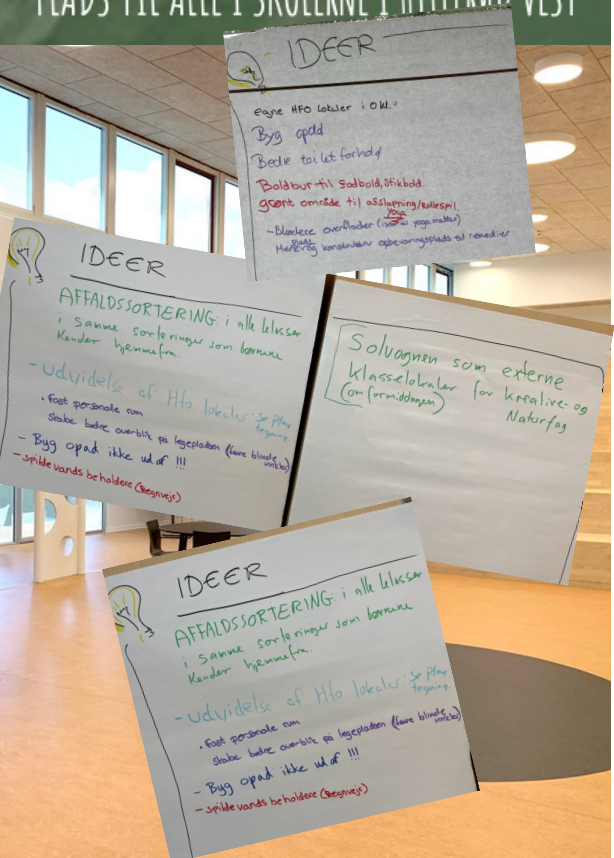 PLADS TIL ALLE I SKOLERNE I VEST
IDEER
egne HFO lokaler i 0 kl.
Byg opad
Bedre toilet forhold
Boldbur til fodbold, stikbold.
grønt område til afslapning/rollespil.
Yoga
- Blødere overflader yogamatter)
Mere plads og opbevaringsplads til remedier
IDEER
AFFALDSSORTERING: i alle klasser
i samme sorteringer som børnene
Kender hjemmefra.
- Udvidelse af Hfo lokaler: se plan
tegning.
• fast personale rum
skabe bedre overblik på legepladsen (færre blinde
vinkler)
- Byg opad ikke ud af !!!
- spildevands beholdere (Regnvejr)
Solvognen som externe
klasselokaler for kreative- og
(om formiddagen) Naturfag
IDEER
AFFALDSSORTERING: i alle klasser
i samme sorteringer som børnene
Kender hjemmefra.
- Udvidelse af Hfo lokaler: se plan
tegning.
• fast personale rum
skabe bedre overblik på legepladsen (færre blinde
vinkler)
- Byg opad ikke ud af !!!
- spildevands beholdere (Regnvejr)